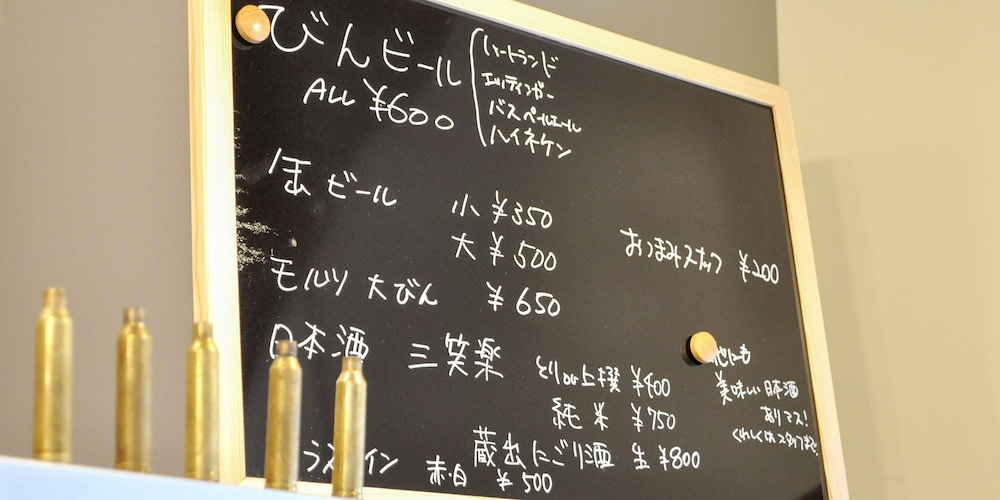 びんビール
ALL ¥600
ハートランド
エルディンガー
バスペールエール
ハイネケン
缶ビール 小 ¥350
大 ¥500
おつまみスナック ¥200
モルツ 大びん ¥650
日本酒 三笑楽 上撰 ¥400
純米 ¥750
蔵出にごり酒 生 ¥800
ワイン 赤・白 ¥500
他にも
美味しい日本酒
あります!
くわしくはスタッフまで